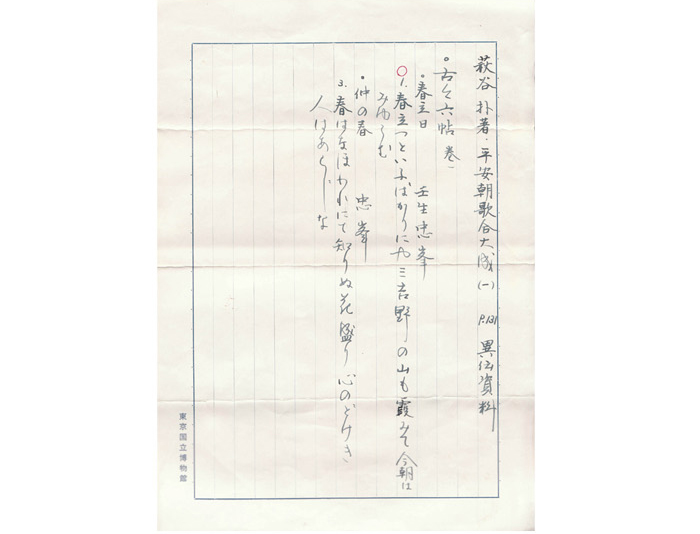 萩谷 朴著・平安朝歌合大成(一) P.131 異伝資料
・古今六帖 巻一
・春立日 壬生忠峯
○1. 春立つといふばかりにや三吉野の山も霞みて今朝は
みゆらむ
・仲の春 忠峯
3. 春はなほわれにて知りぬ花盛り心のどけき
人はあらじな
東京国立博物館